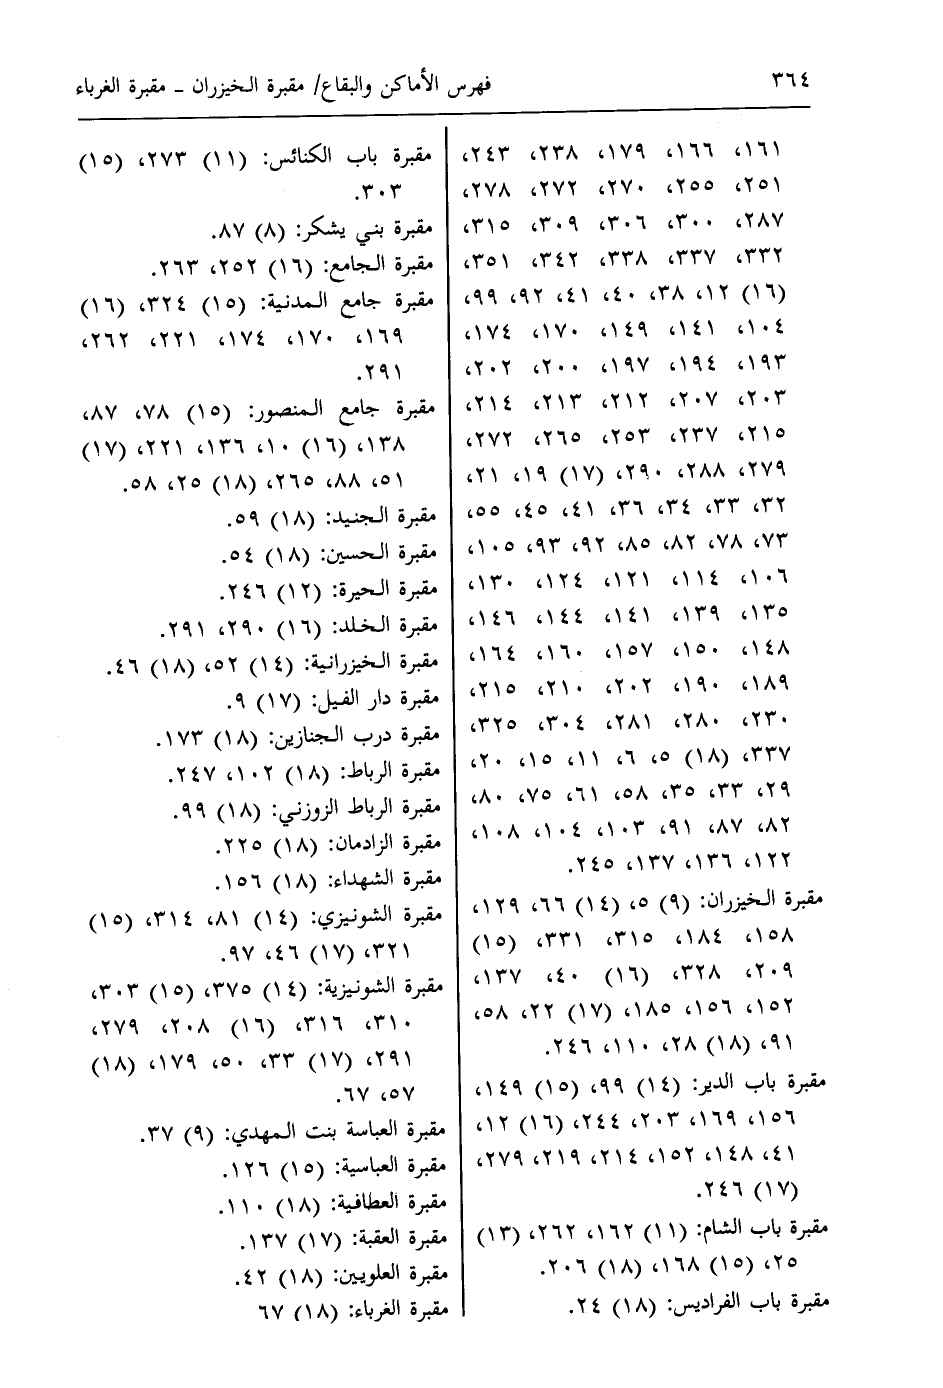 ٣٦٤
فهرس الأماكن والبقاع/ مقبرة الخيزران ـ مقبرة الغرباء
١٦١، ١٦٦، ١٧٩، ٢٣٨، ٢٤٣،
٢٥١، ٢٥٥، ٢٧٠، ٢٧٢، ٢٧٨،
٢٨٧، ٣٠٠، ٣٠٦، ٣٠٩، ٣١٥،
٣٣٢، ٣٣٧، ٣٣٨، ٣٤٢، ٣٥١،
(١٦) ١٢، ٣٨، ٤٠، ٤١، ٩٢، ٩٩،
١٠٤، ١٤١، ١٤٩، ١٧٠، ١٧٤،
١٩٣، ١٩٤، ١٩٧، ٢٠٠، ٢٠٢،
٢٠٣، ٢٠٧، ٢١٢، ٢١٣، ٢١٤،
٢١٥، ٢٣٧، ٢٥٣، ٢٦٥، ٢٧٢،
٢٧٩، ٢٨٨، ٢٩٠، (١٧) ١٩، ٢١،
٣٢، ٣٣، ٣٤، ٣٦، ٤١، ٤٥، ٥٥،
٧٣، ٧٨، ٨٢، ٨٥، ٩٢، ٩٣، ١٠٥،
١٠٦، ١١٤، ١٢١، ١٢٤، ١٣٠،
١٣٥، ١٣٩، ١٤١، ١٤٤، ١٤٦،
١٤٨، ١٥٠، ١٥٧، ١٦٠، ١٦٤،
١٨٩، ١٩٠، ٢٠٢، ٢١٠، ٢١٥،
٢٣٠، ٢٨٠، ٢٨١، ٣٠٤، ٣٢٥،
٣٣٧، (١٨) ٥، ٦، ١١، ١٥، ٢٠،
٢٩، ٣٣، ٣٥، ٥٨، ٦١، ٧٥، ٨٠،
٨٢، ٨٧، ٩١، ١٠٣، ١٠٤، ١٠٨،
١٢٢، ١٣٦، ١٣٧، ٢٤٥.
مقبرة الخيزران: (٩) ٥، (١٤) ٦٦، ١٢٩،
١٥٨، ١٨٤، ٣١٥، ٣٣١، (١٥)
٢٠٩، ٣٢٨، (١٦) ٤٠، ١٣٧،
١٥٢، ١٥٦، ١٨٥، (١٧) ٢٢، ٥٨،
٩١، (١٨) ٢٨، ١١٠، ٢٤٦.
مقبرة باب الدير: (١٤) ٩٩، (١٥) ١٤٩،
١٥٦، ١٦٩، ٢٠٣، ٢٤٤، (١٦) ١٢،
٤١، ١٤٨، ١٥٢، ٢١٤، ٢١٩، ٢٧٩،
(١٧) ٢٤٦.
مقبرة باب الشام: (١١) ١٦٢، ٢٦٢، (١٣)
٢٥، (١٥) ١٦٨، (١٨) ٢٠٦.
مقبرة باب الفراديس: (١٨) ٢٤.
مقبرة باب الكنائس: (١١) ٢٧٣، (١٥)
٣٠٣.
مقبرة بني يشكر: (٨) ٨٧.
مقبرة الجامع: (١٦) ٢٥٢، ٢٦٣.
مقبرة جامع المدنية: (١٥) ٣٢٤، (١٦)
١٦٩، ١٧٠، ١٧٤، ٢٢١، ٢٦٢،
٢٩١.
مقبرة جامع المنصور: (١٥) ٧٨، ٨٧،
١٣٨، (١٦) ١٠، ١٣٦، ٢٢١، (١٧)
٥١، ٨٨، ٢٦٥، (١٨) ٢٥، ٥٨.
مقبرة الجنيد: (١٨) ٥٩.
مقبرة الحسين: (١٨) ٥٤.
مقبرة الحيرة: (١٢) ٢٤٦.
مقبرة الخلد: (١٦) ٢٩٠، ٢٩١.
مقبرة الخيزرانية: (١٤) ٥٢، (١٨) ٤٦.
مقبرة دار الفيل: (١٧) ٩.
مقبرة درب الجنازين: (١٨) ١٧٣.
مقبرة الرباط: (١٨) ١٠٢، ٢٤٧.
مقبرة الرباط الزوزني: (١٨) ٩٩.
مقبرة الزادمان: (١٨) ٢٢٥.
مقبرة الشهداء: (١٨) ١٥٦.
مقبرة الشونيزي: (١٤) ٨١، ٣١٤، (١٥)
٣٢١، (١٧) ٤٦، ٩٧.
مقبرة الشونيزية: (١٤) ٣٧٥، (١٥) ٣٠٣،
٣١٠، ٣١٦، (١٦) ٢٠٨، ٢٧٩،
٢٩١، (١٧) ٣٣، ٥٠، ١٧٩، (١٨)
٥٧، ٦٧.
مقبرة العباسة بنت المهدي: (٩) ٣٧.
مقبرة العباسية: (١٥) ١٢٦.
مقبرة العطافية: (١٨) ١١٠.
مقبرة العقبة: (١٧) ١٣٧.
مقبرة العلويين: (١٨) ٤٢.
مقبرة الغرباء: (١٨) ٦٧